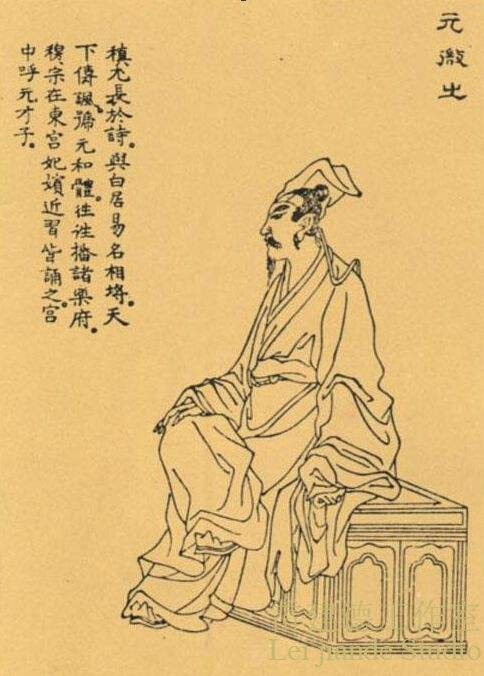 元微之
稹尤長於詩。與白居易名相埒。天
下傳諷、號元和體。往往播諸樂府。
穆宗在東宮妃嬪近習皆誦之。宮
中呼元才子。
工作室
Lei jiande Studio